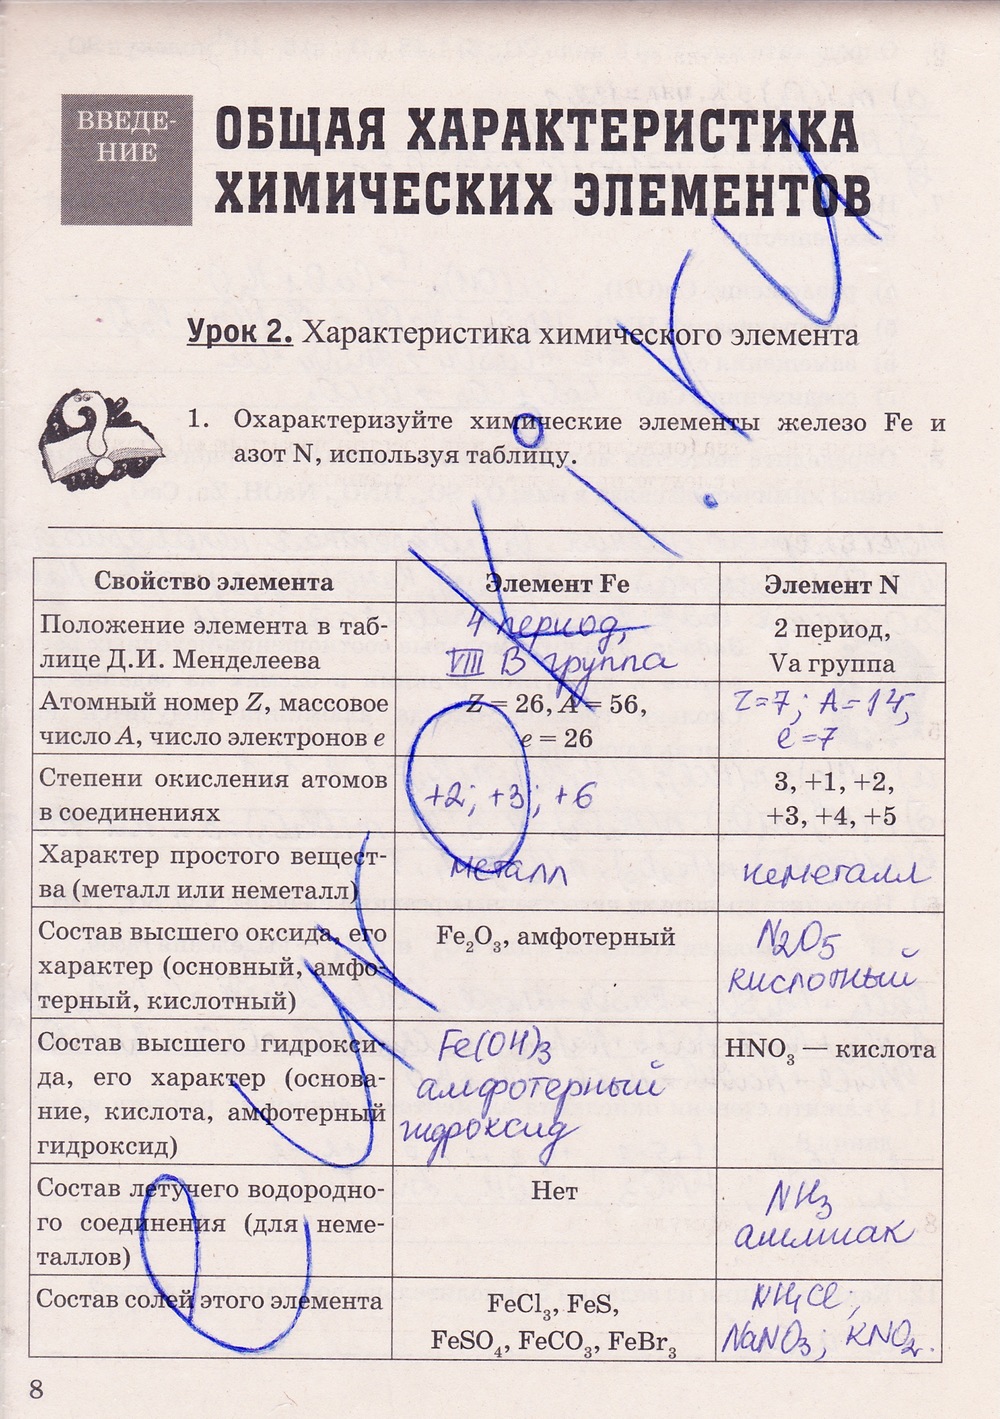 ВВЕДЕ-
НИЕ
ОБЩАЯ ХАРАКТЕРИСТИКА
ХИМИЧЕСКИХ ЭЛЕМЕНТОВ
Урок 2. Характеристика химического элемента
1. Охарактеризуйте химические элементы железо Fe и
азот N, используя таблицу.
Свойство элемента
Элемент Fe
Элемент N
Положение элемента в таб-
лице Д.И. Менделеева
4 период,
VIII В группа
2 период,
Va группа
Атомный номер Z, массовое
число A, число электронов e
Z = 26, A = 56,
e = 26
Z=7; A=14,
e=7
Степени окисления атомов
в соединениях
+2; +3; +6
3, +1, +2,
+3, +4, +5
Характер простого вещест-
ва (металл или неметалл)
металл
неметалл
Состав высшего оксида, его
характер (основный, амфо-
терный, кислотный)
Fe₂O₃, амфотерный
N₂O₅
кислотный
Состав высшего гидрокси-
да, его характер (основа-
ние, кислота, амфотерный
гидроксид)
Fe(OH)₃
амфотерный
гидроксид
HNO₃ — кислота
Состав летучего водородно-
го соединения (для неме-
таллов)
Нет
NH₃
аммиак
Состав солей этого элемента
FeCl₃, FeS,
FeSO₄, FeCO₃, FeBr₃
NH₄Cl;
NaNO₃; KNO₂.
8